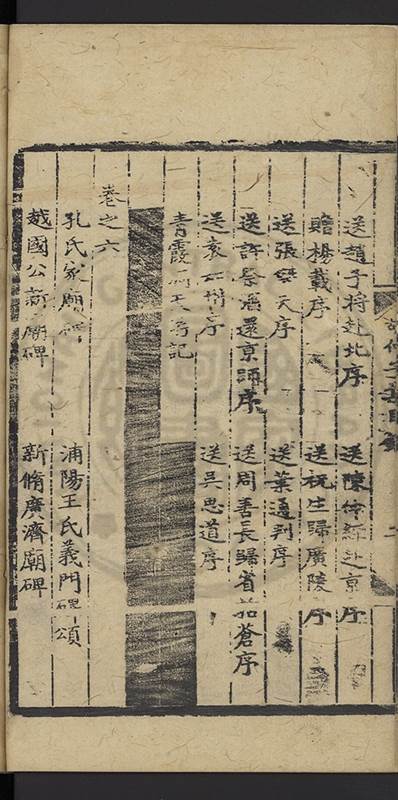 送趙子將赴北序　送陳仲經赴京序
贈楊載序　送祝生歸廣陵序
送張　天序　送葉通判序
送許　　還京師序　送周善長歸省　蒼序
送袁　州序　送吳思道序
青霞洞天　記
卷之六
孔氏家廟碑　浦陽王氏義門碑頌
越國公新廟碑　新脩廣濟廟碑